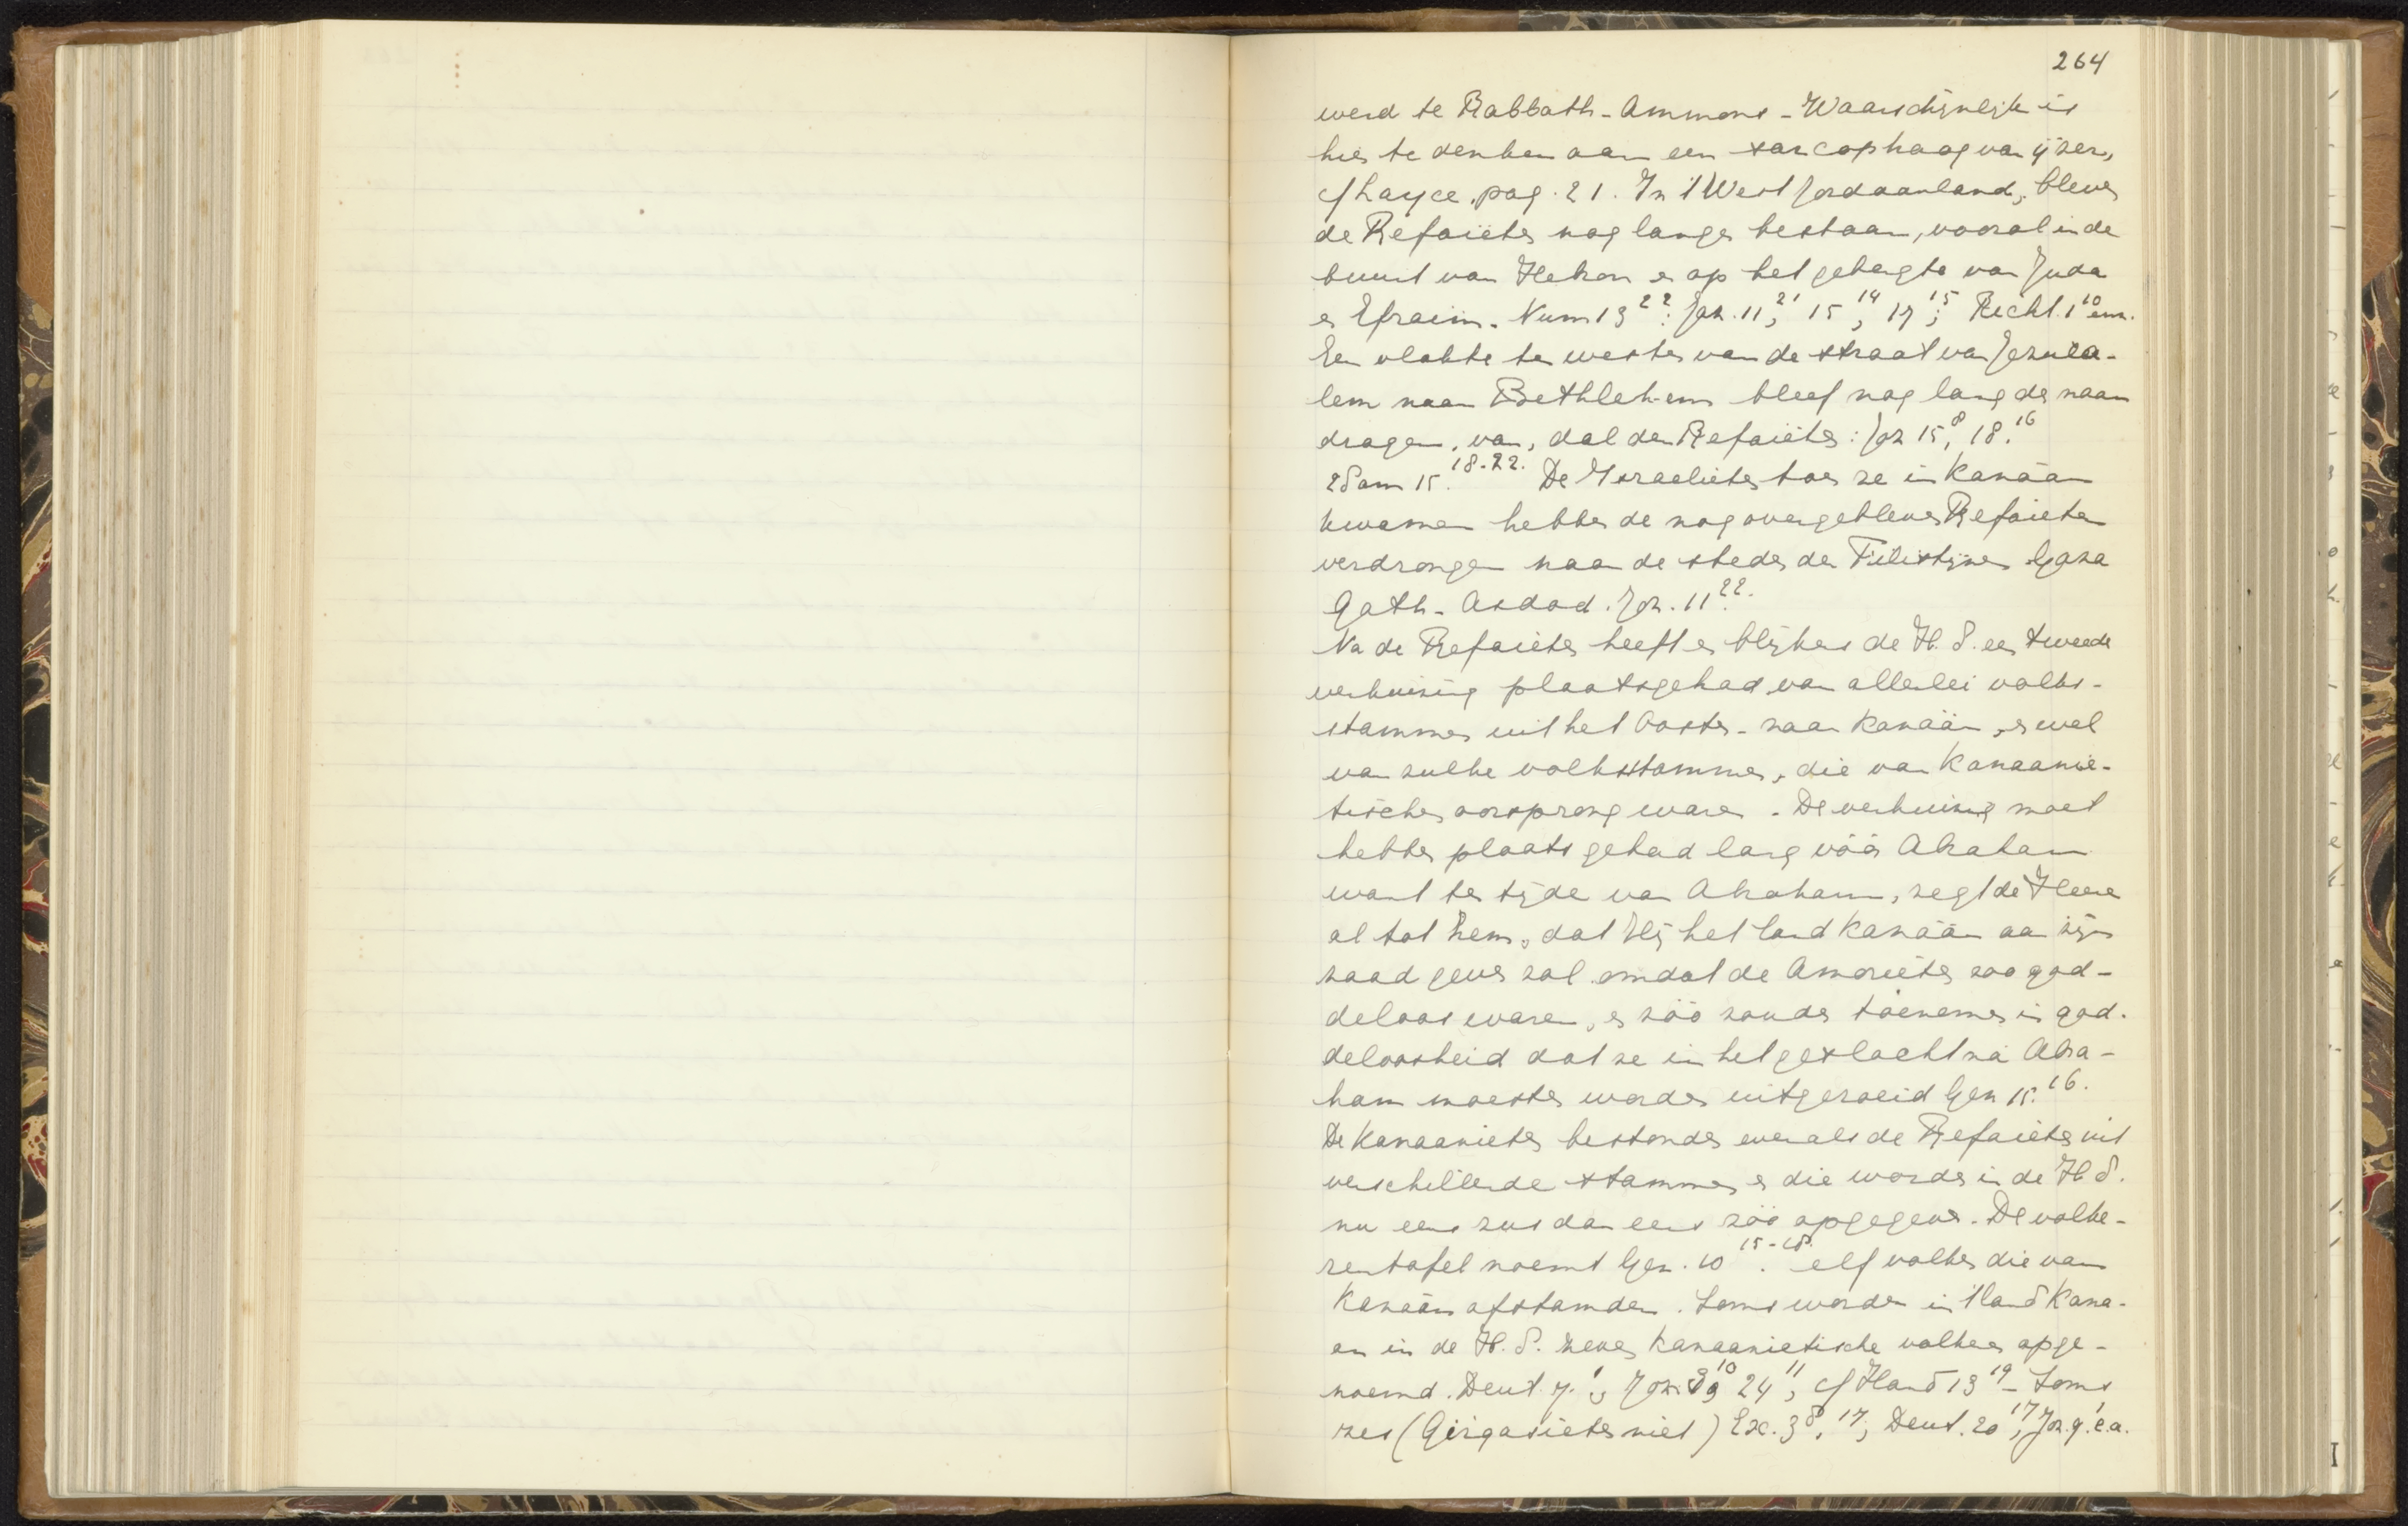 264
werd te Rabbath-Ammons - Waarschijnlijk is
hier te denken aan een sarcophaag van ijzer,
cf Sayce pag. 21. In 't West Jordaanland, bleven
de Refaieten nog lange bestaan, vooral in de
buurt van Hebron en op het gebergte van Juda
en Efraim. Num 13²²: Joz. 11²¹, 15¹⁴, 17¹⁵; Recht. 1¹⁰ enz.
Een vlakte ten westen van de straat van Jeruza-
lem naar Bethlehem bleef nog lang den naam
dragen, van, dal der Refaieten: Joz 15⁸, 18¹⁶.
2 Sam 15¹⁸⁻²². De Israelieten toen ze in Kanaän
kwamen hebben de nog overgebleven Refaieten
verdrongen naar de steden der Filistijnen Gaza
Gath - Asdod. Joz. 11²².
Na de Refaieten heeft er blijkens de H.S. een tweede
verhuizing plaatsgehad van allerlei volks-
stammen uit het Oosten - naar Kanaän, en wel
van zulke volksstammen, die van Kanaanie-
tischen oorsprong waren. De verhuizing moet
hebben plaats gehad lang vóór Abraham
want ten tijde van Abraham, zegt de Heere
al tot hem, dat Hij het land Kanaän aan zijn
zaad geven zal omdat de Amorieten zoo god-
deloos waren, en zóó zouden toenemen in god-
deloosheid dat ze in het geslacht ná Abra-
ham moesten worden uitgeroeid Gen 15¹⁶.
De Kanaanieten bestonden evenals de Refaieten uit
verschillende stammen en die worden in de H.S.
nu eens zus dan eens zóó opgegeven. De volke-
rentafel noemt Gen. 10¹⁵⁻¹⁸. elf volken die van
Kanaän afstamden. Soms worden in 't land Kana-
an in de H.S. zeven Kanaanietische volken opge-
noemd. Deut. 7¹, Joz. 3¹⁰, 24¹¹, cf Hand 13¹⁹ - Soms
zes (Girgasieten niet) Ex. 3⁸, ¹⁷, Deut. 20¹⁷, Joz. 9¹ e.a.